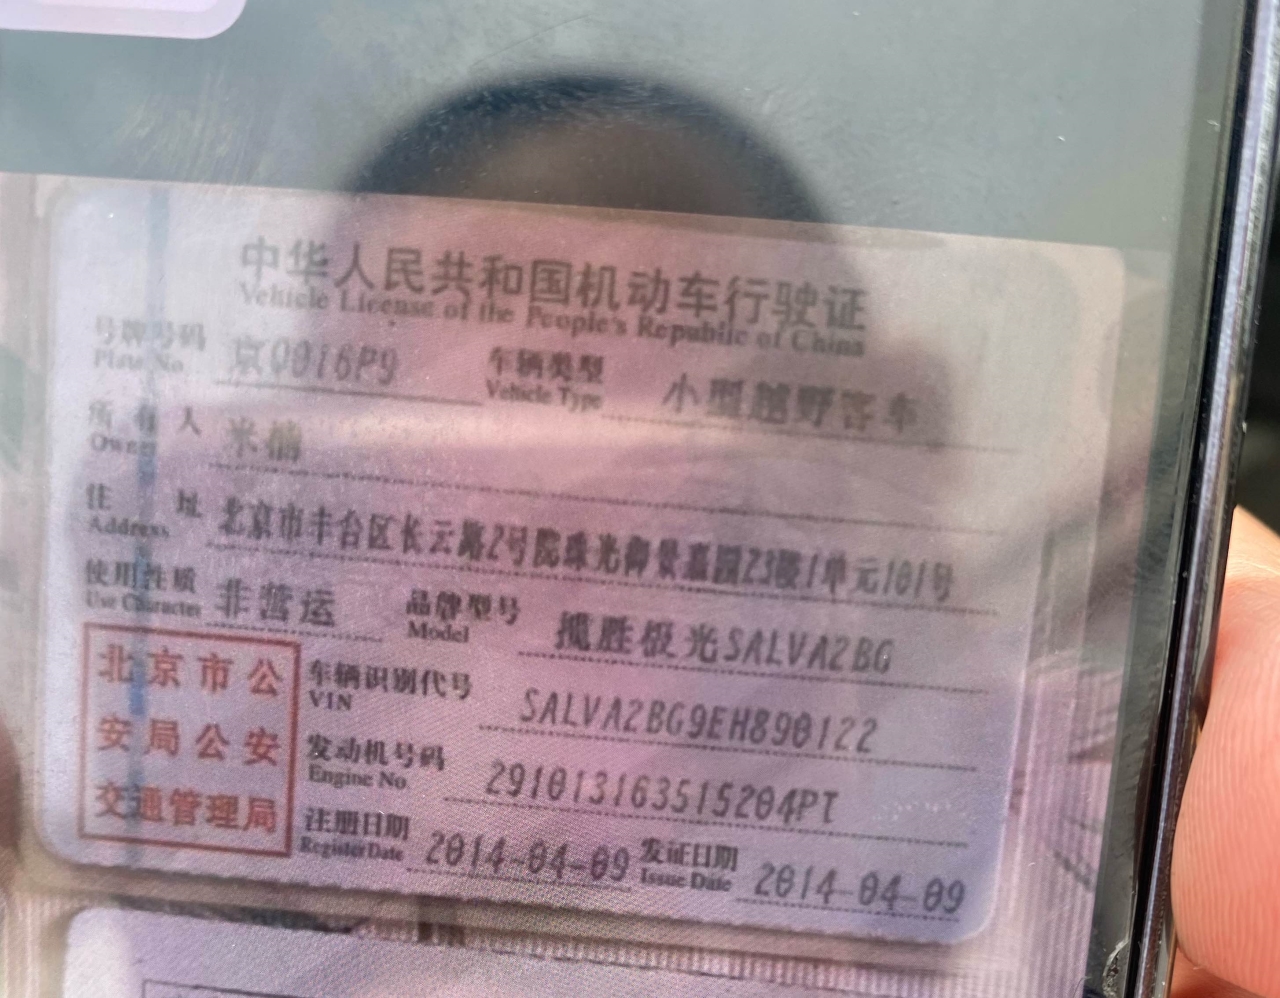 中华人民共和国机动车行驶证
Vehicle License of the People's Republic of China
号牌号码 京Q016P9 车辆类型 小型越野客车
Plate No. Vehicle Type
所有人 米楠
Owner
住址 北京市丰台区长云路2号院珠光御景嘉园23楼1单元101号
Address
使用性质 非营运 品牌型号 揽胜极光SALVA2BG
Use Character Model
北京市公
安局公安
交通管理局
车辆识别代号 SALVA2BG9EH890122
VIN
发动机号码 291013163515204PT
Engine No.
注册日期 2014-04-09 发证日期 2014-04-09
Register Date Issue Date